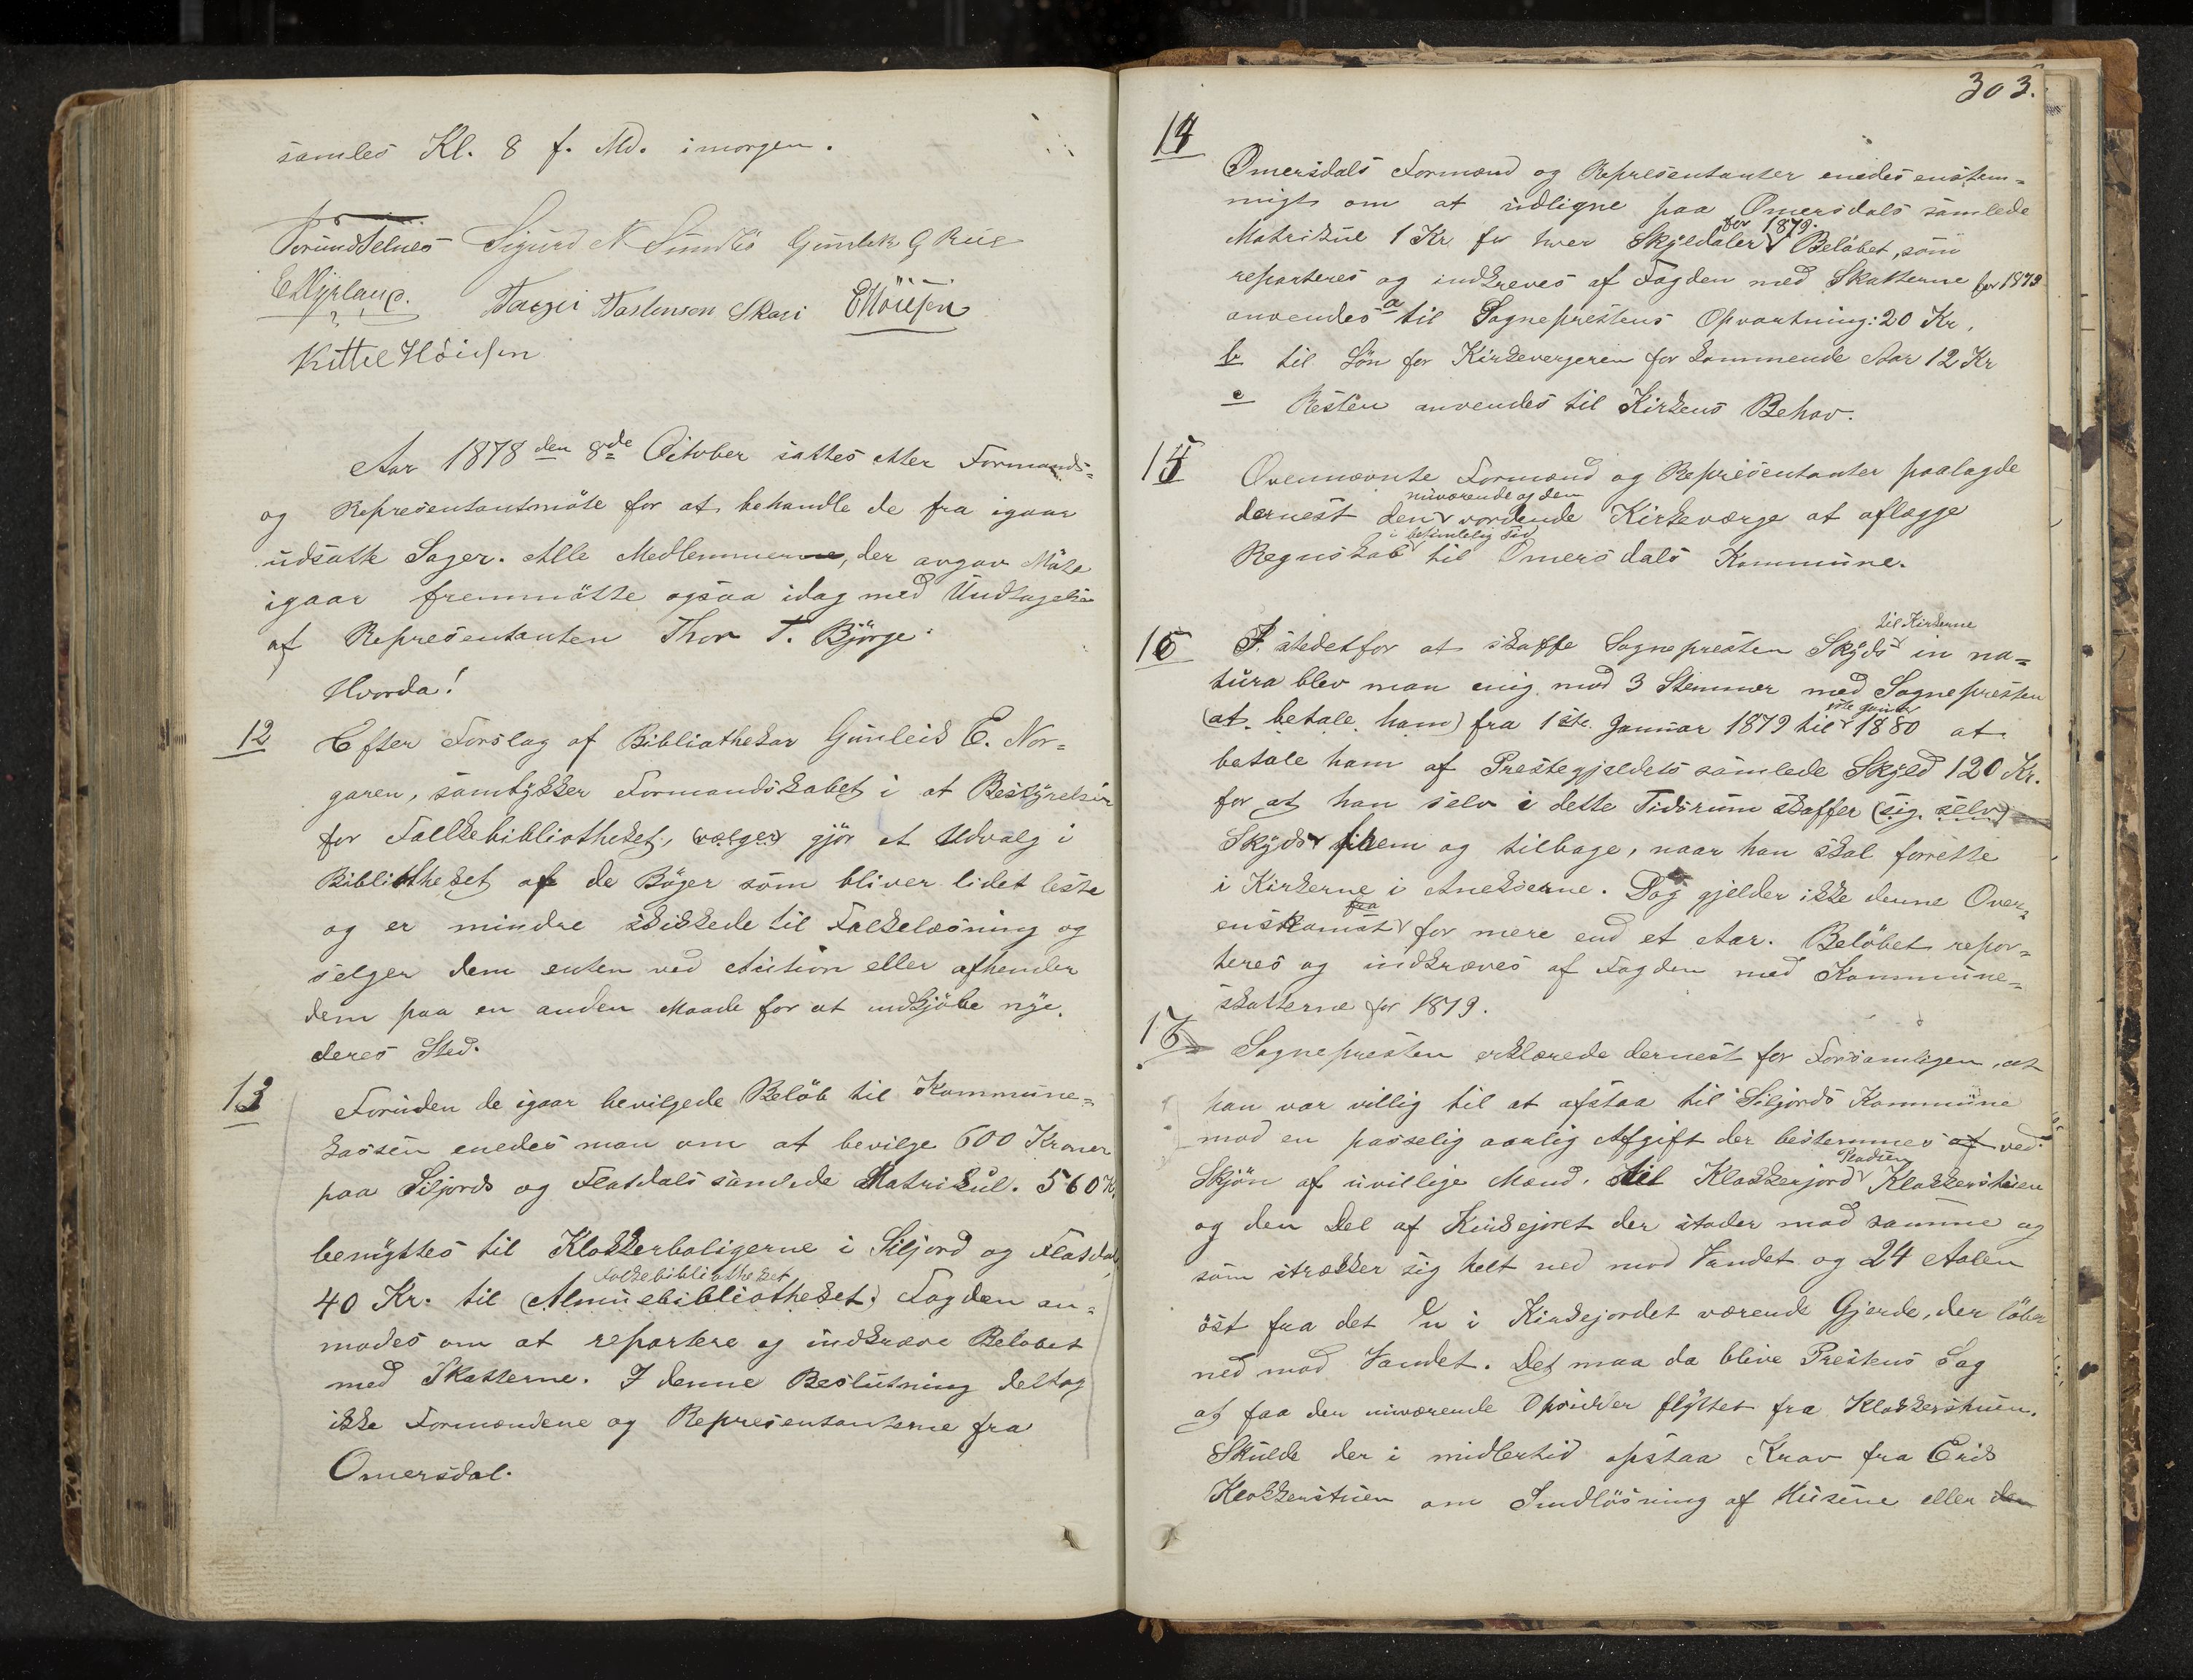 samles Kl. 8 f. Md. imorgen.
Sigurd N Sundbö Gunlek G Rue
Targei Tarlenson Skari
Kittel Höidsen
Aar 1878 den 8de October sattes etter Formands-
og Representantmöte for at behandle de fra igaar
udsatte Sager. Alle Medlemmerne, der avgav Möte
igaar fremmötte ogsaa idag med Undtagelse
af Representanten Thor T. Björge.
Hvorda!
12 Efter Forslag af Bibliothekar Gunleik E. Nor-
garen, samtykker Formandskabet i at Bestyrelsen
for Folkebibliotheket, (vælger) gjör et Udvalg i
Bibliotheket af de Böger som bliver lidet leste
og er mindre skikkede til Folkelæsning og
selger dem enten ved Auction eller afhender
dem paa en anden Maade for at indkjöbe nye
deres Sted.
13 Foruden de igaar bevilgede Belöb til Kommune-
kassen enedes man om at bevilge 600 Kroner
paa Siljords og Flatdals samlede Matrikul. 560 Kr
benyttes til Klokkerboligerne i Siljord og Flatdal,
Folkebibliotheket
40 Kr. til (Almuebibliotheket) Fogden an-
modes om at repartere og indkræve Belöbet
med Skatterne. I denne Beslutning deltog
ikke Formændene og Representanterne fra
Omersdal.
303.
14
Omersdals Formænd og Representanter enedes enstem-
migt om at udligne paa Omersdals samlede
for 1879.
Matrikul 1 Kr for hver Skylddaler Belöbet, som
reparteres og indkreves af Fogden med Skatterne for 1879
anvendes a til Sogneprestens Opvartning: 20 Kr,
b til Lön for Kirkevergeren for kommende Aar 12 Kr
c Resten anvendes til Kirkens Behov.
15 Ovennævnte Formænd og Representanter paalagde
nuværende og den
dernest den vordende Kirkeværge at aflægge
i betimelig Tid
Regnskab til Omersdals Kommune.
til Kirkerne
16 I stedetfor at skaffe Sognepresten Skyds in na-
tura blev man enig mod 3 Stemmer med Sognepresten
1ste Januar
(at betale ham) fra 1ste Januar 1879 til 1880 at
betale ham af Prestegjeldets samlede Skyld 120 Kr.
for at han selv i dette Tidsrum skaffer (sig selv)
Skyds frem og tilbage, naar han skal forrette
i Kirkerne i Anekserne. Dog gjelder ikke denne Over-
enskomst for mere end et Aar. Belöbet repor-
teres og indkræves af Fogden med Kommune-
skatterne for 1879.
17 Sognepresten erklærede dernest for Forsamligen, at
han var villig til at afstaa til Siljords Kommune
mod en passelig aarlig Afgift der bestemmes af ved
Skjön af uvillige Mænd, til Klokkerjord Pladsen Klokkerstuen
og den Del af Kirkejoret der stöder mod samme og
som strækker sig helt ned mod Vandet og 24 Aalen
öst fra det nu i Kirkejordet værende Gjerde, der löber
ned mod Vandet. Det maa da blive Prestens Sag
at faa den nuværende Opsidder flyttet fra Klokkerstuen.
Skulde der i midlertid opstaa Krav fra Erik
Klokkerstuen om Indlösning af Husene eller den